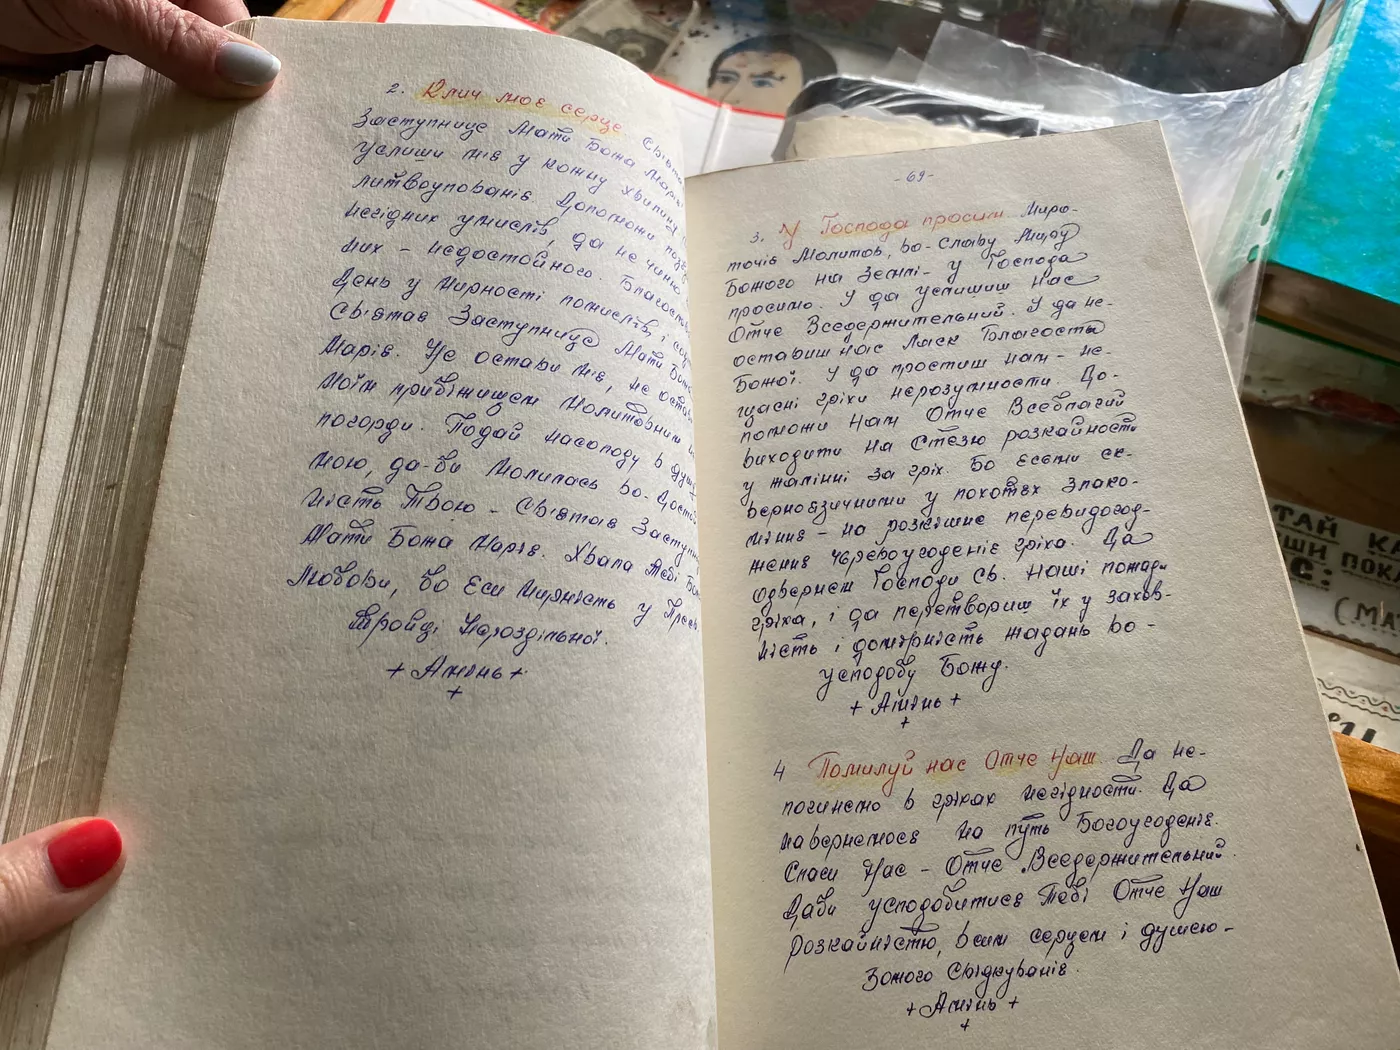 2. Клич моє серце Свята
Заступнице Мати Божа Марія
услиши мів у кожну хвилину
литвоуповання. Допоможи
негідних умислів, да не чиню
них - недостойного. Благослови
День у Мирності помислів, і
Святая Заступнице Мати Божа
Марів. Не остави мів, не остав
моїм прибіжищем Молитовним
погорди. Подай насолоду в душі
мою, да-би Молилась во-Достой
ність Твою - Святая Заступни
Мати Божа Марів. Хвала Тебі
Любови, бо Єси Мирність у Пресв
Тройці Нероздільної.
+ Амінь +
+
-69-
3. У Господа просим Миро-
точів Молитов, во-Славу Миру
Божого на Землі- у Господа
просимо. У да услишиш Нас
Отче Вседержительний. У да не-
оставиш нас Ласк Благости
Божої. У да простиш нам - не-
щасні гріхи нерозумности. До-
поможи Нам Отче Всеблагий
виходити на Стезю розкайности
у жалінні за гріх. Бо єсьми ск-
вернотзичними у похотях Злако-
мінив - на розкішне перевидогод-
жения черевоугоденіє гріха. Да
одвернем Господи Св. Наші пожади
гріха, і да перетвориш їх у захов-
ність і домірність жадань во-
усподобу Божу.
+ Амінь +
+
4 Помилуй нас Отче Наш Да не-
погинемо в гріхах негідности. Да
навернемосв на путь Богоугоденів.
Спаси Нас - Отче Вседержительний.
Даби усподобитисв Тебі Отче Наш
Розкайністю, всим серцем і душею-
Божого Свідкуванів.
+ Амінь +
+
ТАЙ
(МА